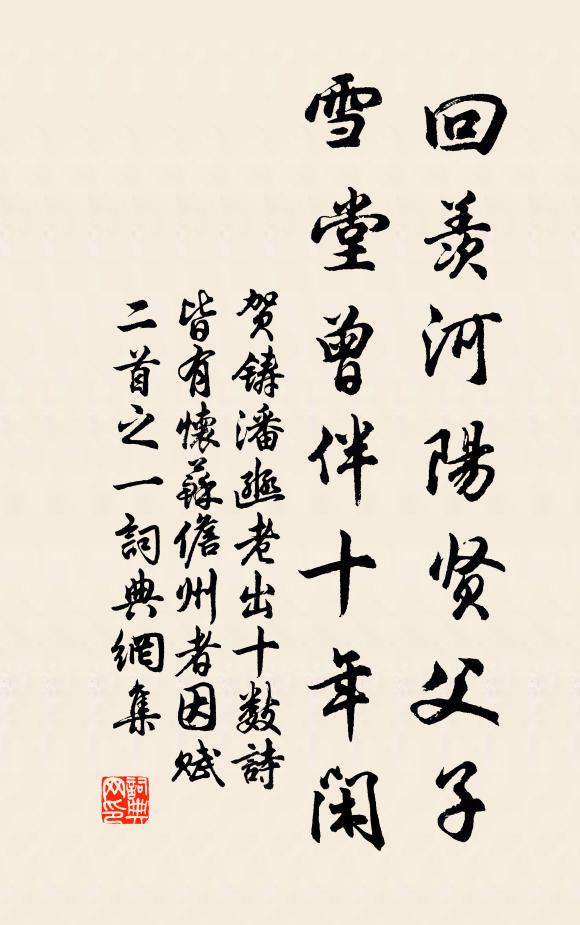 回羨河陽贤父子
雪堂曾伴十年闲
贺鋳潘邠老出十数詩
皆有懷蘇儋州者因赋
二首之一詞典網集
詞典
网印